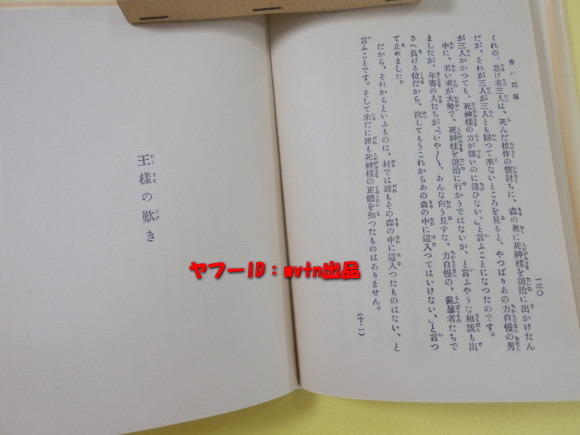 赤い部屋
一三〇
くれの、怠け者三人は、死んだ樵作の讐討ちに、森の奥に死神樣を退治に出かけたん
だが、それが三人が三人とも歸つて來ないところを見ると、やつぱりあの力自慢の男
が三人かかつても、死神樣の方が强いのに違ひない。」と言ふことになつたのです。
中に、若い者が大勢で、死神樣を退治に行かうではないか、と言ふやうな相談も出
ましたが、年寄の人たちが、「いや〳〵、あんな向う見ずな、力自慢の、亂暴者たちで
さへ負ける位だから、決してもうこれからあの森の中に這入つてはいけない。」と言つ
て止めました。
だから、それからといふものは、村では誰もその森の中に這入つたものはない、と
言ふことです。さして未だに誰も死神樣の正體を知つたものはありません。
(十二)
王樣の歎き
ヤフーID：mvtn出品